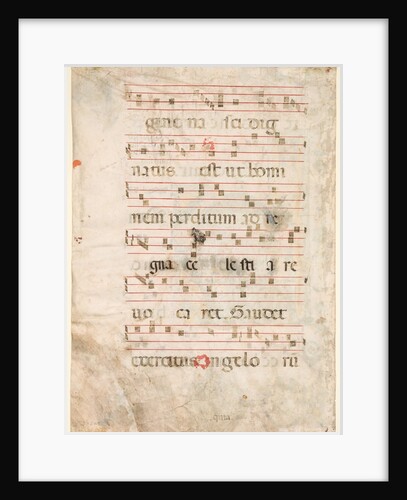 gine na sci dig
natus est ut homi
nem perditum ad re
gna ce lesti a re
uo ca ret. Gaudet
exercitus angelo rū